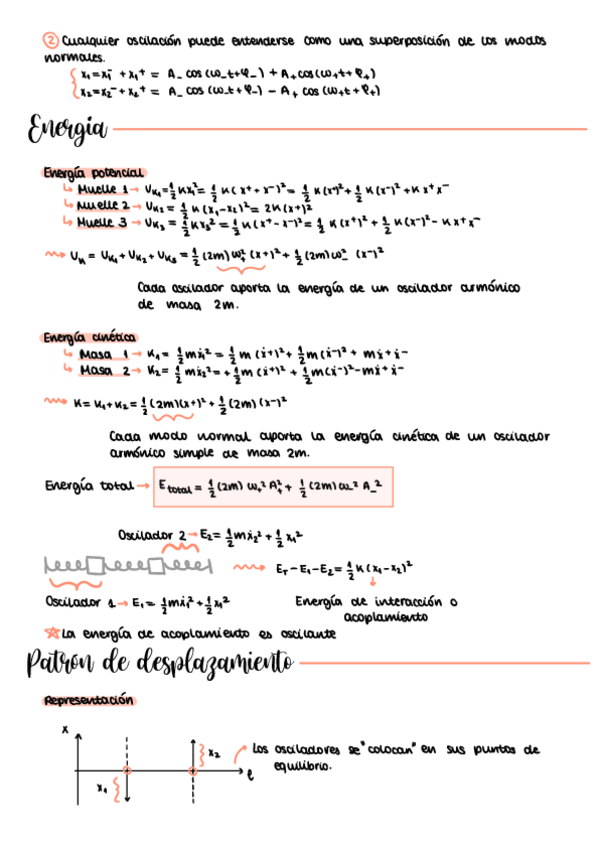 ② Cualquier oscilación puede entenderse como una superposición de los modos
normales.
x₁=x₁⁻ + x₁⁺ = A₋ cos (ω₋t+φ₋) + A₊cos(ω₊t+φ₊)
x₂=x₂⁻ + x₂⁺ = A₋ cos (ω₋t+φ₋) − A₊ cos (ω₊t+φ₊)
Energía
Energía potencial
↳ Muelle 1 → Uₖ₁=½Kx₁²= ½ K( x⁺ + x⁻)²= ½ K(x⁺)²+ ½ K(x⁻)² + K x⁺ x⁻
↳ Muelle 2 → Uₖ₂ = ½ K (x₁-x₂)²= 2K(x⁺)²
↳ Muelle 3 → Uₖ₃ = ½Kx₂² = ½K(x⁺-x⁻)²= ½ K (x⁺)² + ½ K(x⁻)²- K x⁺ x⁻
Uₖ = Uₖ₁+Uₖ₂+Uₖ₃ = ½ (2m) ω₊² (x⁺)² + ½ (2m) ω₋² (x⁻)²
Cada oscilador aporta la energía de un oscilador armónico
de masa 2m.
Energía cinética
↳ Masa 1 → K₁= ½mẋ₁² = ½ m (ẋ⁺)²+ ½m(ẋ⁻)² + mẋ⁺ẋ⁻
↳ Masa 2 → K₂= ½ mẋ₂²= +½m(ẋ⁺)² + ½m(ẋ⁻)²-mẋ⁺ẋ⁻
K= K₁+K₂= ½(2m)(x⁺)²+ ½ (2m) (x⁻)²
Cada modo normal aporta la energía cinética de un oscilador
armónico simple de masa 2m.
Energía total → E total = ½ (2m) ω₊² A₊² + ½ (2m) ω₋² A₋²
Oscilador 2 → E₂= ½mẋ₂² + ½ x₁²
E_T − E₁ − E₂ = ½ K (x₁-x₂)²
Oscilador 1 → E₁ = ½mẋ₁² + ½x₁²
Energía de interacción o
acoplamiento
☆ La energía de acoplamiento es oscilante
Patrón de desplazamiento
Representación
x
x₂
Los osciladores se "colocan" en sus puntos de
equilibrio.
x₁